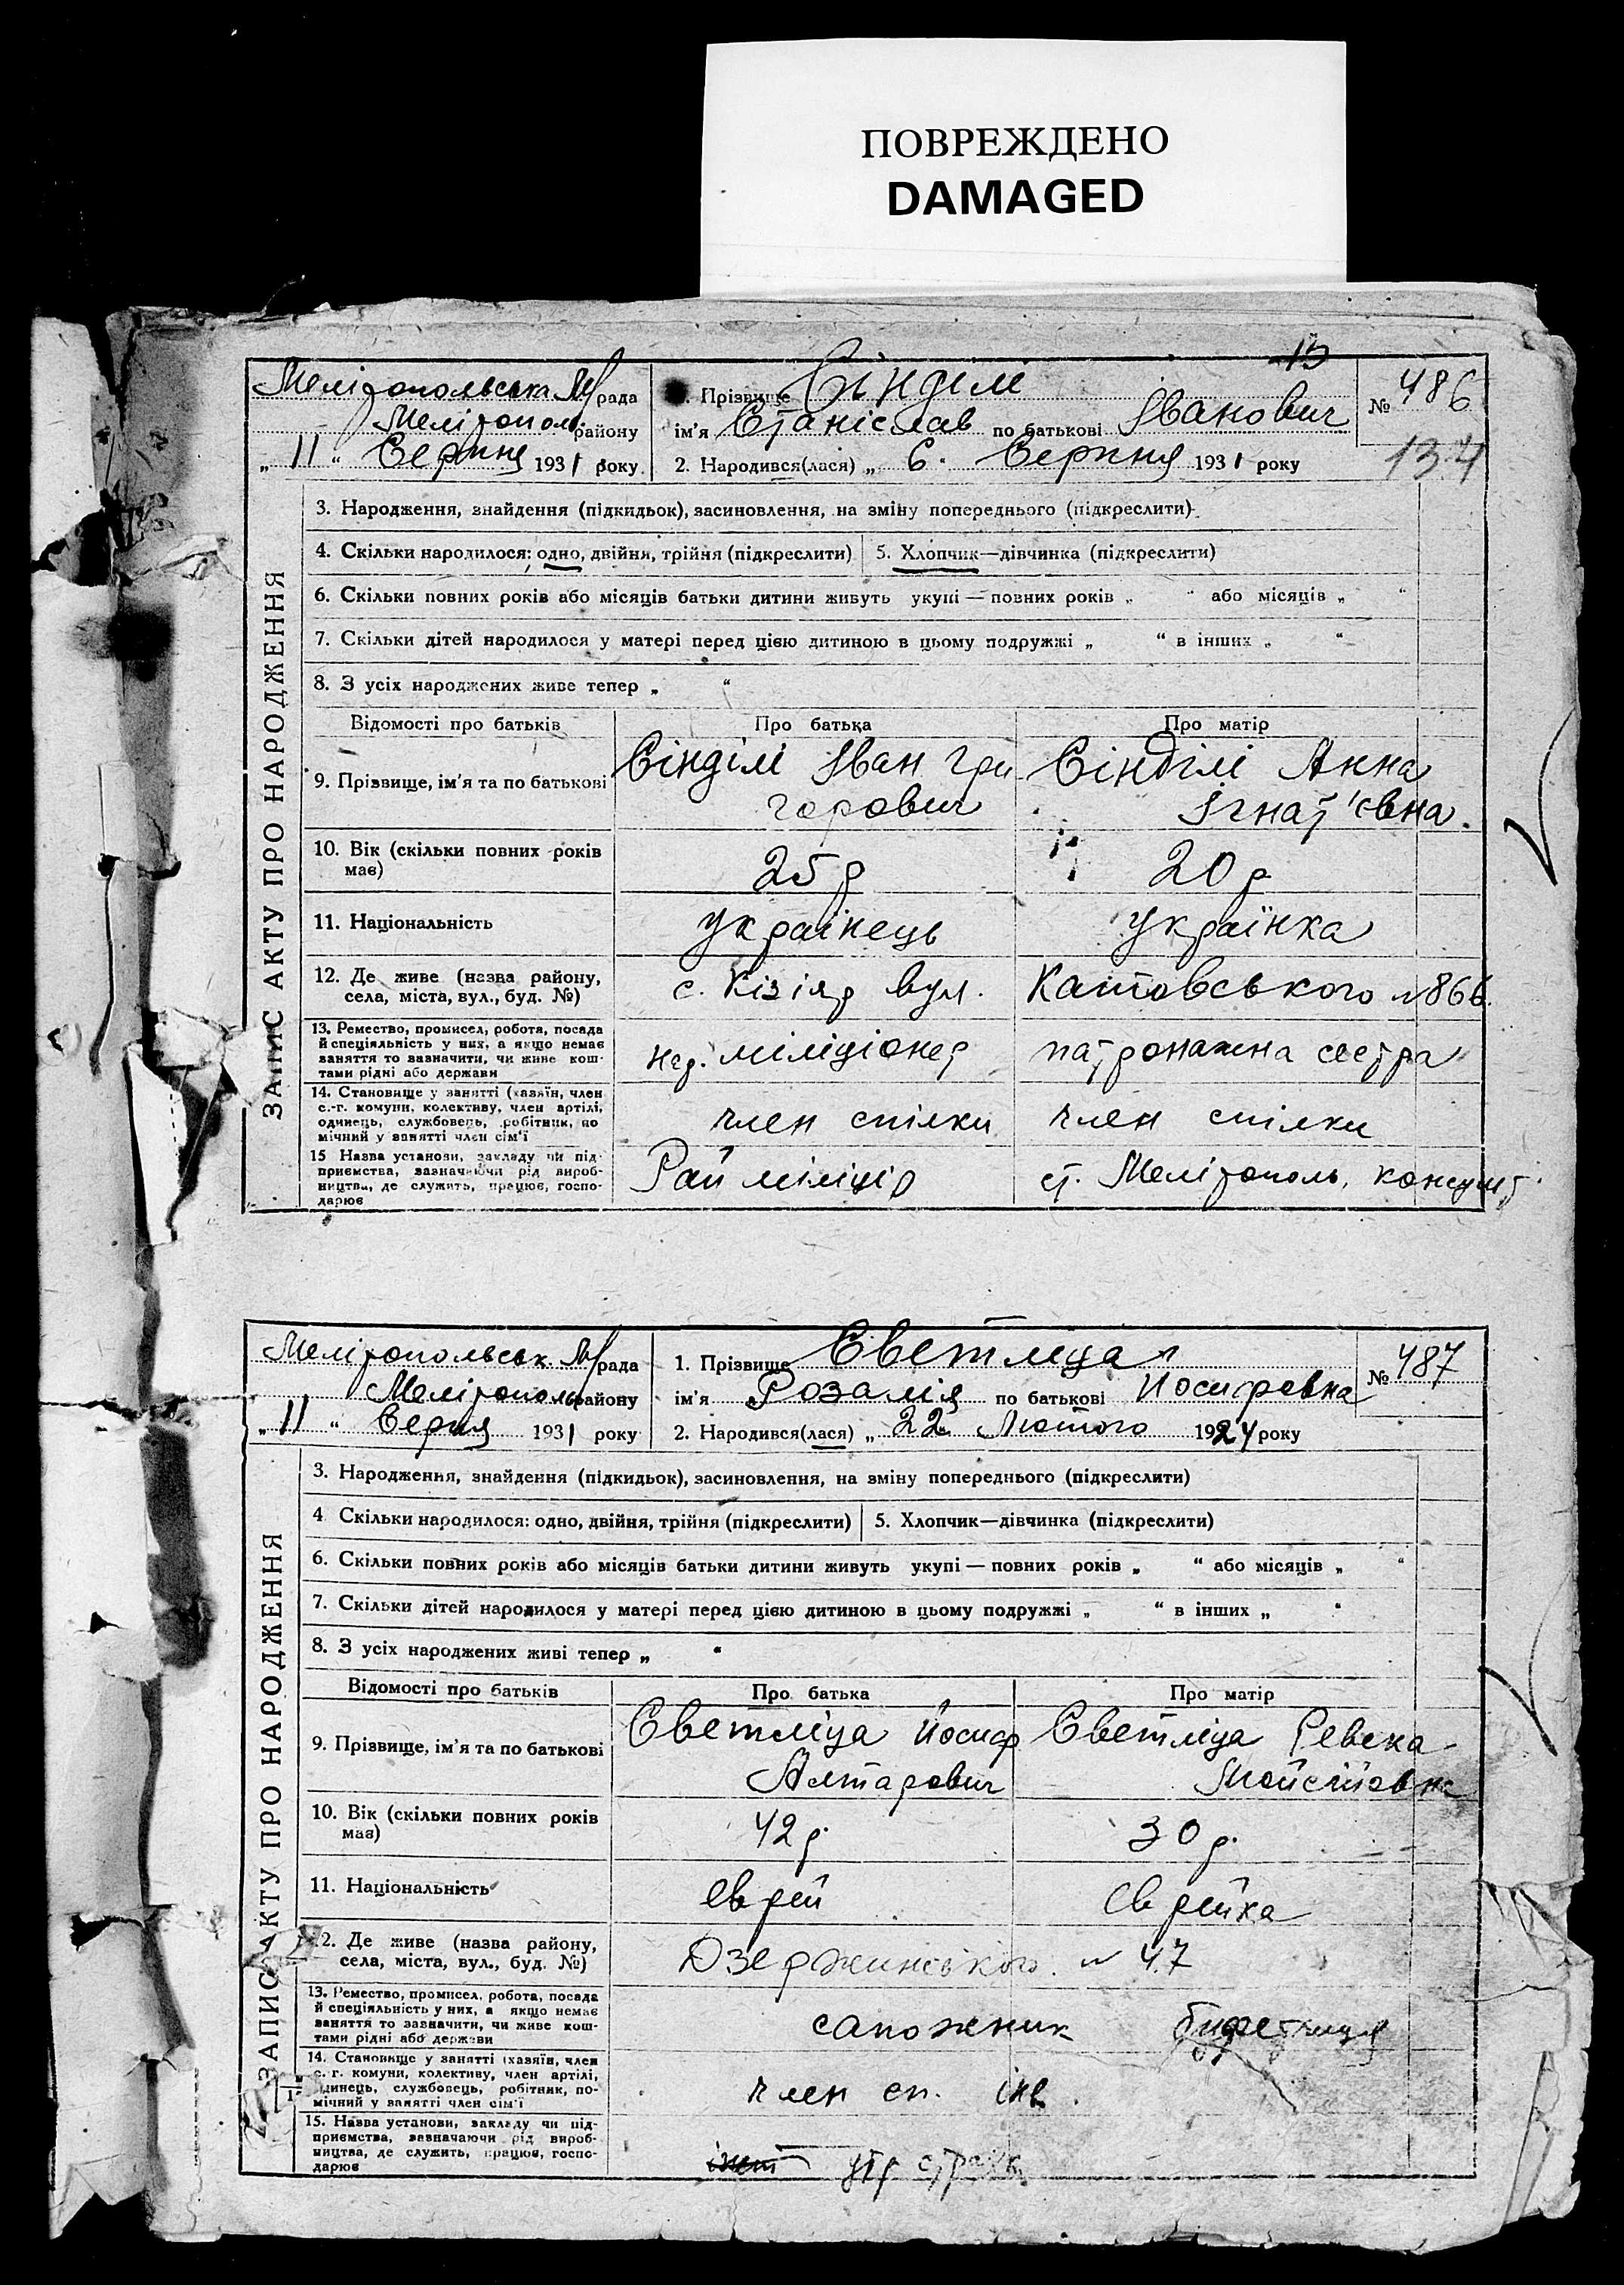 ПОВРЕЖДЕНО
DAMAGED
15
Мелітопольська М/рада
Мелітополь району
„ 11 “ Серпня 1931 року
1. Прізвище Сінділі
ім'я Станіслав по батькові Іванович
2. Народився(лася) „ 6 “ Серпня 1931 року
№ 486
134
ЗАПИС АКТУ ПРО НАРОДЖЕННЯ
3. Народження, знайдення (підкидьок), засиновлення, на зміну попереднього (підкреслити)
4. Скільки народилося: одно, двійня, трійня (підкреслити) 5. Хлопчик—дівчинка (підкреслити)
6. Скільки повних років або місяців батьки дитини живуть укупі — повних років „ “ або місяців „ “
7. Скільки дітей народилося у матері перед цією дитиною в цьому подружжі „ “ в інших „ “
8. З усіх народжених живе тепер „ “
Відомості про батьків Про батька Про матір
9. Прізвище, ім'я та по батькові Сінділі Іван Гри Сінділі Анна
горович Ігнат'євна.
10. Вік (скільки повних років
має) 25 р 20 р
11. Національність українець українка
12. Де живе (назва району,
села, міста, вул., буд. №) с. Кізіяр вул. Катовського №866.
13. Ремество, промисел, робота, посада
й спеціяльність у них, а якщо немає
заняття то зазначити, чи живе кош-
тами рідні або держави
міліціонер патронажна сестра
14. Становище у занятті (хазяїн, член
с.-г. комуни, колективу, член артілі,
одинець, службовець, робітник, по
мічний у занятті член сім'ї
член спілки член спілки
15 Назва установи, закладу чи під-
приємства, зазначаючи рід вироб-
ництва, де служить, працює, госпо-
дарює
Рай міліція ст. Мелітополь, консульт
Мелітопольськ. М/рада
Мелітополь району
„ 11 “ Серпя 1931 року
1. Прізвище Светліца
ім'я Розалія по батькові Иосифевна
2. Народився(лася) „ 22 “ Лютого 1924 року
№ 487
ЗАПИС АКТУ ПРО НАРОДЖЕННЯ
3. Народження, знайдення (підкидьок), засиновлення, на зміну попереднього (підкреслити)
4 Скільки народилося: одно, двійня, трійня (підкреслити) 5. Хлопчик—дівчинка (підкреслити)
6. Скільки повних років або місяців батьки дитини живуть укупі — повних років „ “ або місяців „ “
7. Скільки дітей народилося у матері перед цією дитиною в цьому подружжі „ “ в інших „ “
8. З усіх народжених живі тепер „ “
Відомості про батьків Про батька Про матір
9. Прізвище, ім'я та по батькові Светліца Йосиф Светліца Ревека
Алтарович Мойсіївна
10. Вік (скільки повних років
має) 42 р. 30 р.
11. Національність еврей Єврейка
2. Де живе (назва району,
села, міста, вул., буд. №) Дзержинського № 47
13. Ремество, промисел, робота, посада
й спеціяльність у них, а якщо немає
заняття то зазначити, чи живе кош-
тами рідні або держави
сапожник буфетниця
14. Становище у занятті (хазяїн, член
с. г. комуни, колективу, член артілі,
динець, службовець, робітник, по-
мічний у занятті член сім'ї
член сп. інв.
15. Назва установи, закладу чи під-
приємства, зазначаючи рід вироб-
ництва, де служить, працює, госпо-
дарює